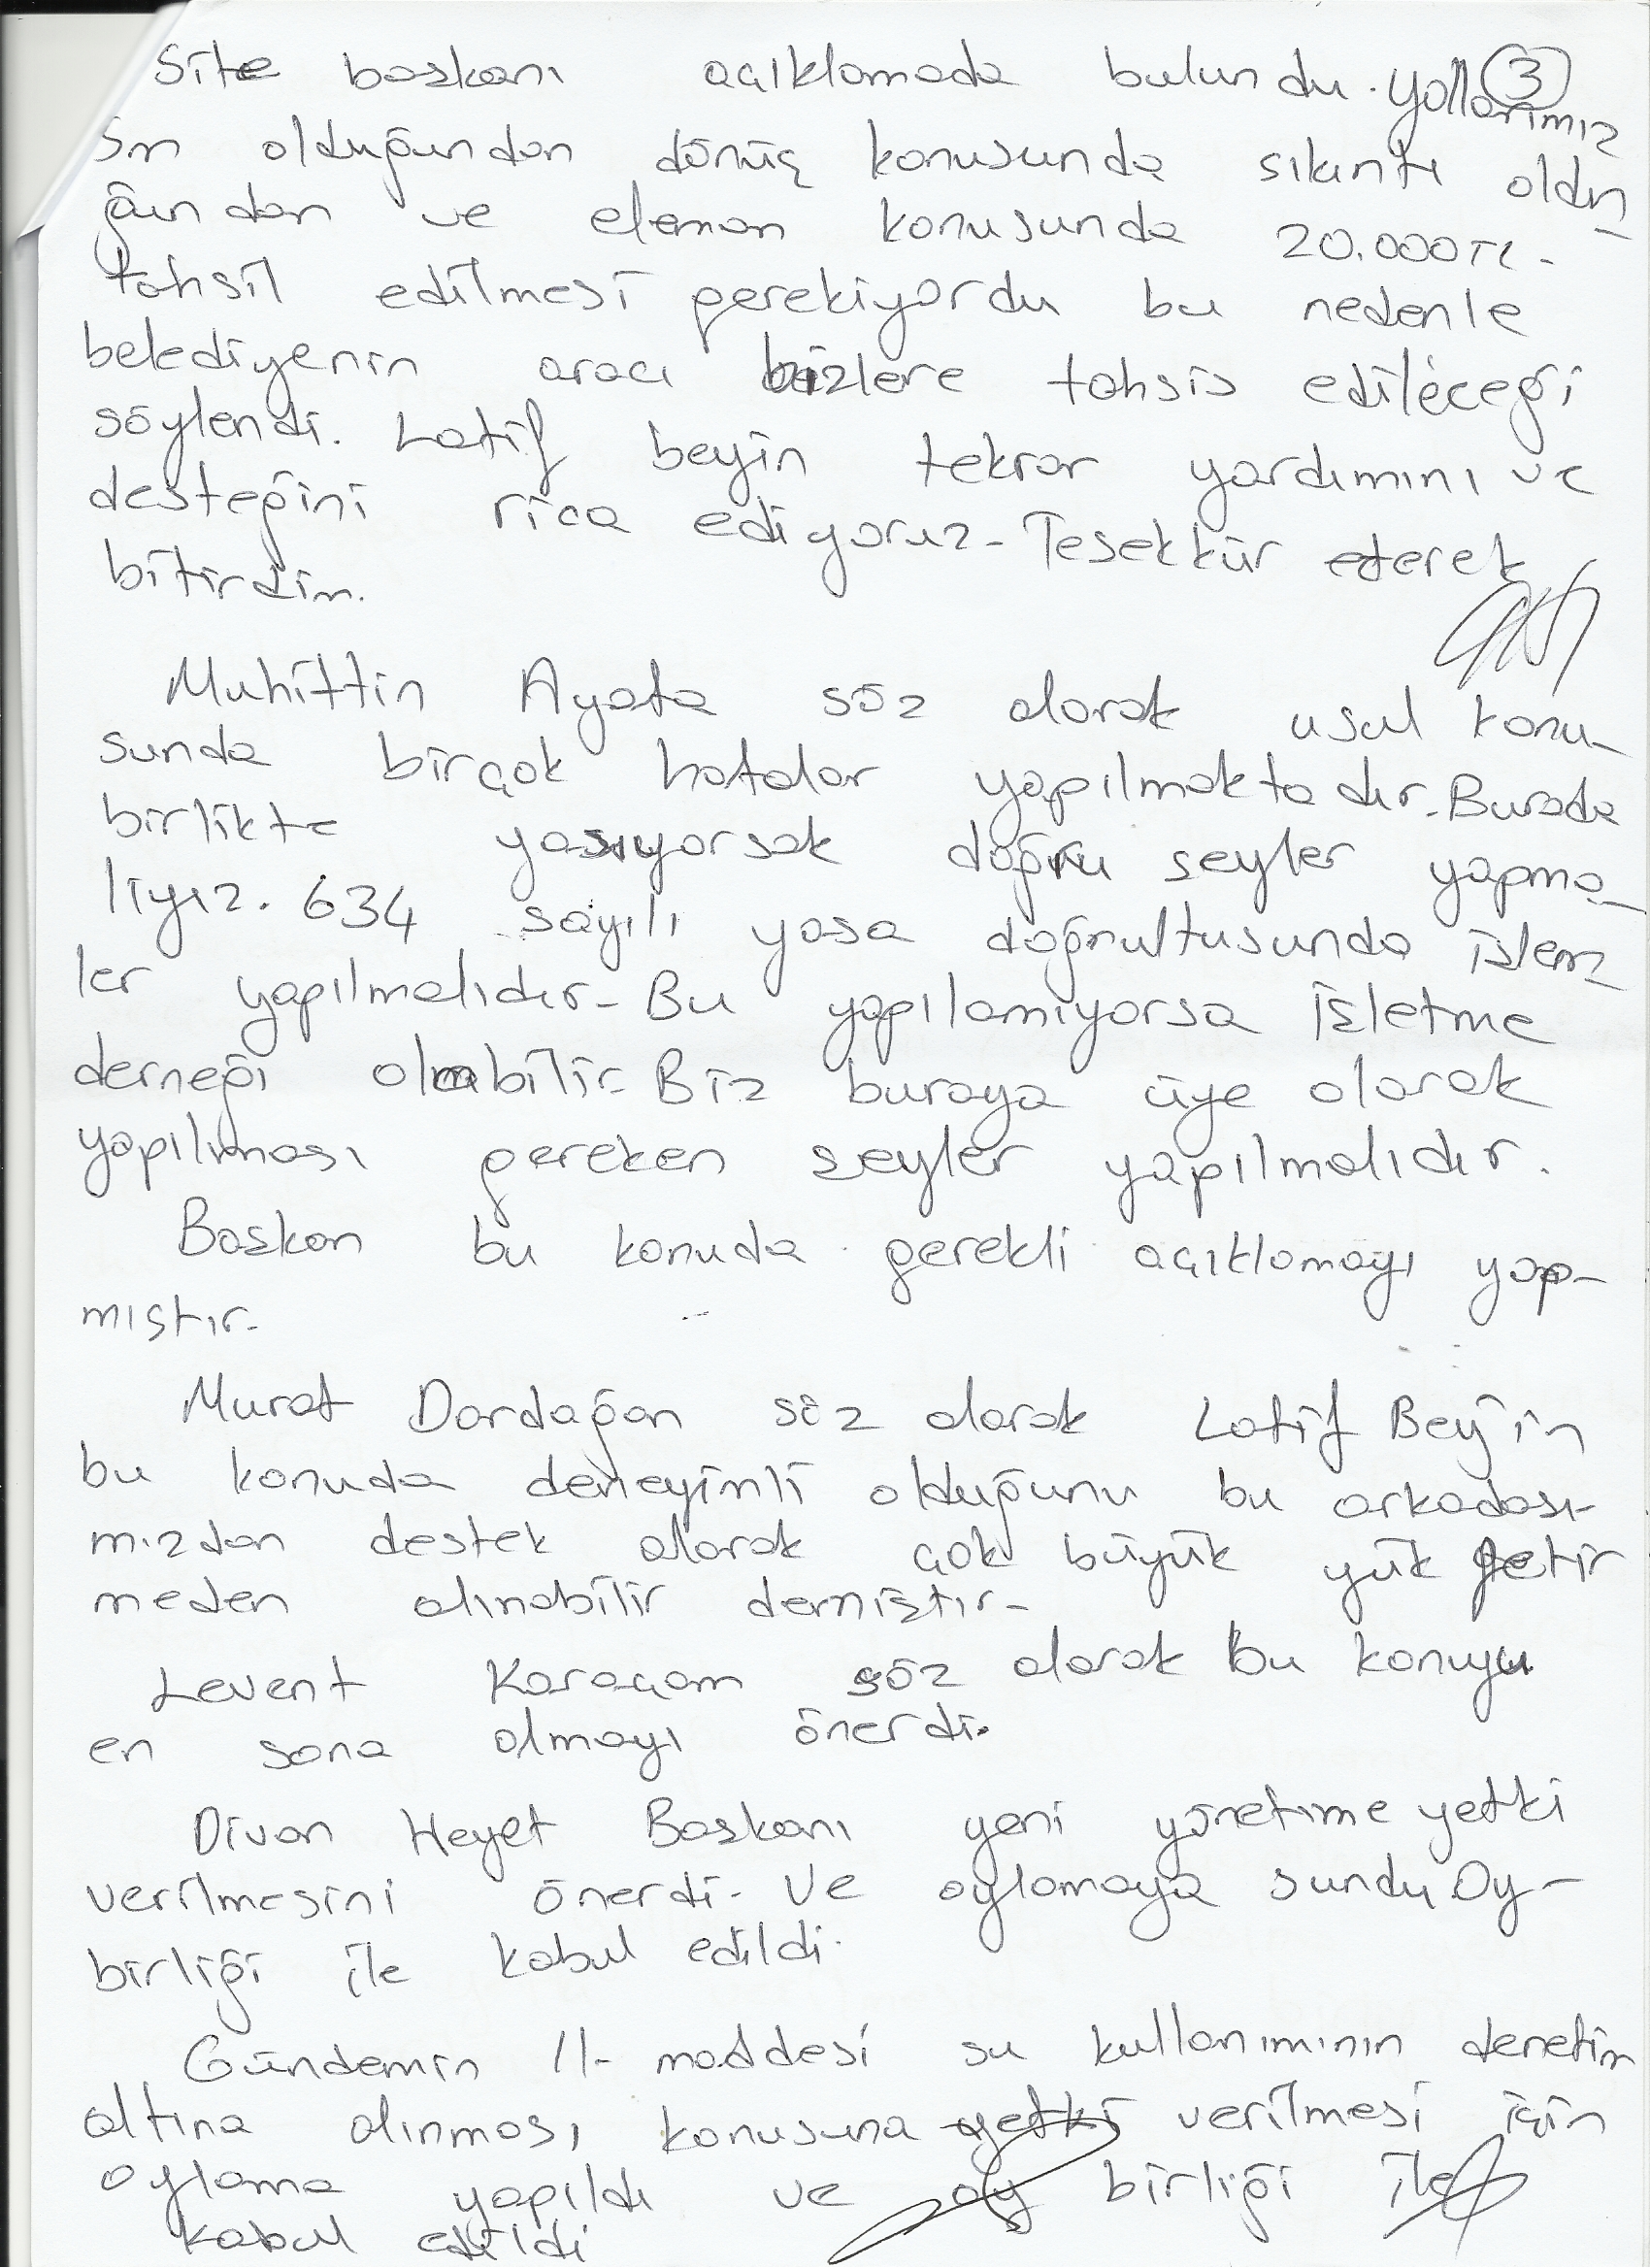 3
Site başkanı açıklamada bulundu. Yollarımız
5m olduğundan dönüş konusunda sıkıntı oldu-
ğundan ve eleman konusunda 20.000TL.
tahsil edilmesi gerekiyordu bu nedenle
belediyenin aracı bizlere tahsis edileceği
söylendi. Latif beyin tekrar yardımını ve
desteğini rica ediyoruz. Teşekkür ederek
bitirdim.
Muhittin Ayata söz alarak usul konu-
sunda birçok hatalar yapılmaktadır. Burada
birlikte yaşıyorsak doğru şeyler yapma-
lıyız. 634 sayılı yasa doğrultusunda işlem-
ler yapılmalıdır. Bu yapılamıyorsa işletme
derneği olabilir. Biz buraya üye olarak
yapılması gereken şeyler yapılmalıdır.
Başkan bu konuda gerekli açıklamayı yap-
mıştır.
Murat Dardağan söz alarak Latif Bey'in
bu konuda deneyimli olduğunu bu arkadaşı-
mızdan destek alarak çok büyük yük getir
meden alınabilir demiştir.
Levent Karaçam söz alarak bu konuyu
en sona almayı önerdi.
Divan Heyet Başkanı yeni yönetime yetki
verilmesini önerdi. Ve oylamaya sundu, Oy-
birliği ile kabul edildi.
Gündemin 11. maddesi su kullanımının denetim
altına alınması konusuna yetki verilmesi için
oylama yapıldı ve oy birliği ile
kabul edildi